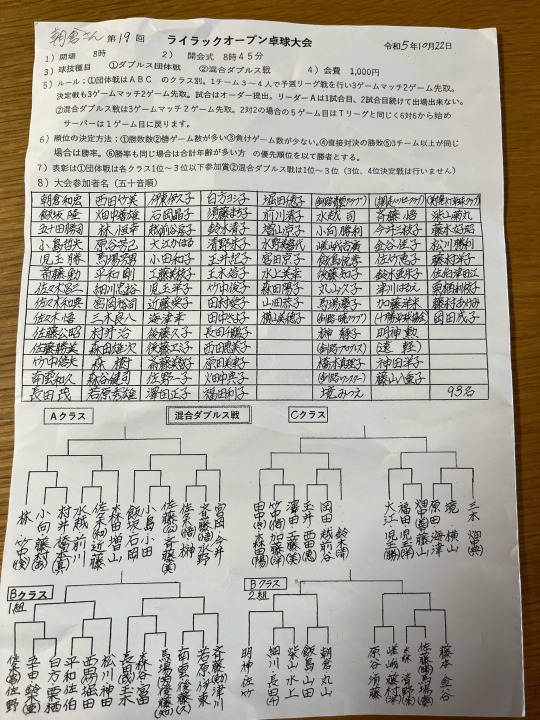 朝倉さん 第19回 ライラックオープン卓球大会 令和5年10月22日
1）開場 8時 2） 開会式 8時45分
3）球技種目 ①ダブルス団体戦 ②混合ダブルス戦 4）会費 1,000円
5）ルール；①団体戦はＡＢＣ のクラス別。1チーム3～4人で予選リーグ戦を行い3ゲームマッチ2ゲーム先取。
決定戦も3ゲームマッチ2ゲーム先取。試合はオーダー提出。リーダーＡは1試合目、2試合目続けて出場出来ない。
②混合ダブルス戦は3ゲームマッチ2ゲーム先取。2対2の場合の5ゲーム目はＴリーグと同じく6対6から始め
サーバーは1ゲーム目に戻ります。
6）順位の決定方法；①勝敗数②勝ゲーム数が多い③負けゲーム数が少ない。④直接対決の勝敗⑤3チーム以上が同じ
場合は勝率。⑥勝率も同じ場合は合計年齢が多い方 の優先順位を以て勝者とする。
7）表彰は①団体戦は各クラス1位～3位以下参加賞②混合ダブルス戦は1位～3位（3位、4位決定戦は行いません）
8）大会参加者名（五十音順）
朝倉和宏 西田竹美 伊東伊久子 白方ヨシ子 堀田徳子
飯坂隆 畑中善雄 石岡晶子 須藤まち子 前川清子 水越司 斎藤悟 柴山南丸
五十田勝司 林恒幸 越前谷房子 鈴木清子 増山京子 小向勝利 今井三枝子 藤本好昭
小島哲夫 原谷芳己 大江かほる 清野永子 松川勝利
児玉勝 馬場芳男 小田和子 玉井紀子 宮田京子 佐竹恵子 藤村洋子
斎藤勲 平和剛 玉木裕子 水上美幸 後藤知子 鈴木亜矢子 佐伯津田江
佐々木宮二 細川忠裕 児玉芊子 竹中俊子 森田陽子 丸山久子 津川はるえ
佐々木和典 宮岡裕司 近藤榮子 田村愛子 山田恭子 馬場慶子 加藤芊末 藤村あけみ
佐々木悟 三木良八 海津幸 田中さよ子 横山美穂子 岡田茂子
佐藤公昭 村井治 後藤久子 長田千鶴子 榊静子 明神数
佐藤勝美 森田雄次 後藤工子 西田恵美子 （遠軽）
竹中信夫 森樹 斎藤美敏子 原田美津子 橋本真理子 神田洋子
斉雲和久 森谷健司 佐野一子 畑中典子 藤山八重子
長田茂 若原秀雄 澤田正子 福田利子 境みつえ 93名
Aクラス 混合ダブルス戦 Cクラス
林 竹中(俊)
小向 藤村(あ)
村井 橋本(真)
水越 前川
佐々木(和) 近藤
森田 増山
飯坂 石岡
小島 小田
佐藤(公) 藤(美)
佐々木(悟) 榊
斉藤(悟) 水野
宮岡 今井
田中(さ) 森田(陽)
竹中(信) 加藤(芊)
澤田 斎藤(美)
玉井 西田(恵)
岡田 越前谷
鈴木(清)
大江 児玉(勝)
福田 児玉(芊)
畑中(善) 藤山
原田 海津
境 横山
三木 畑中(典)
Bクラス 1組
Bクラス 2組
佐藤(勝) 佐野
五十田 鈴木(亜)
白方 栗栖
平和 佐伯
西田(竹) 堀田
松川 神田
長田(茂) 玉木
森谷 宮田
馬場(芳) 後藤(知)
斉雲 後藤(久)
若原 伊東
斉藤(勲) 津川
明神 佐竹
細川 長田(千)
柴山 水上
飯島 山田
朝倉 丸山
原谷 須藤
嵯峨 藤村(洋)
森 清野
佐々木 馬場(慶)
藤本 金谷